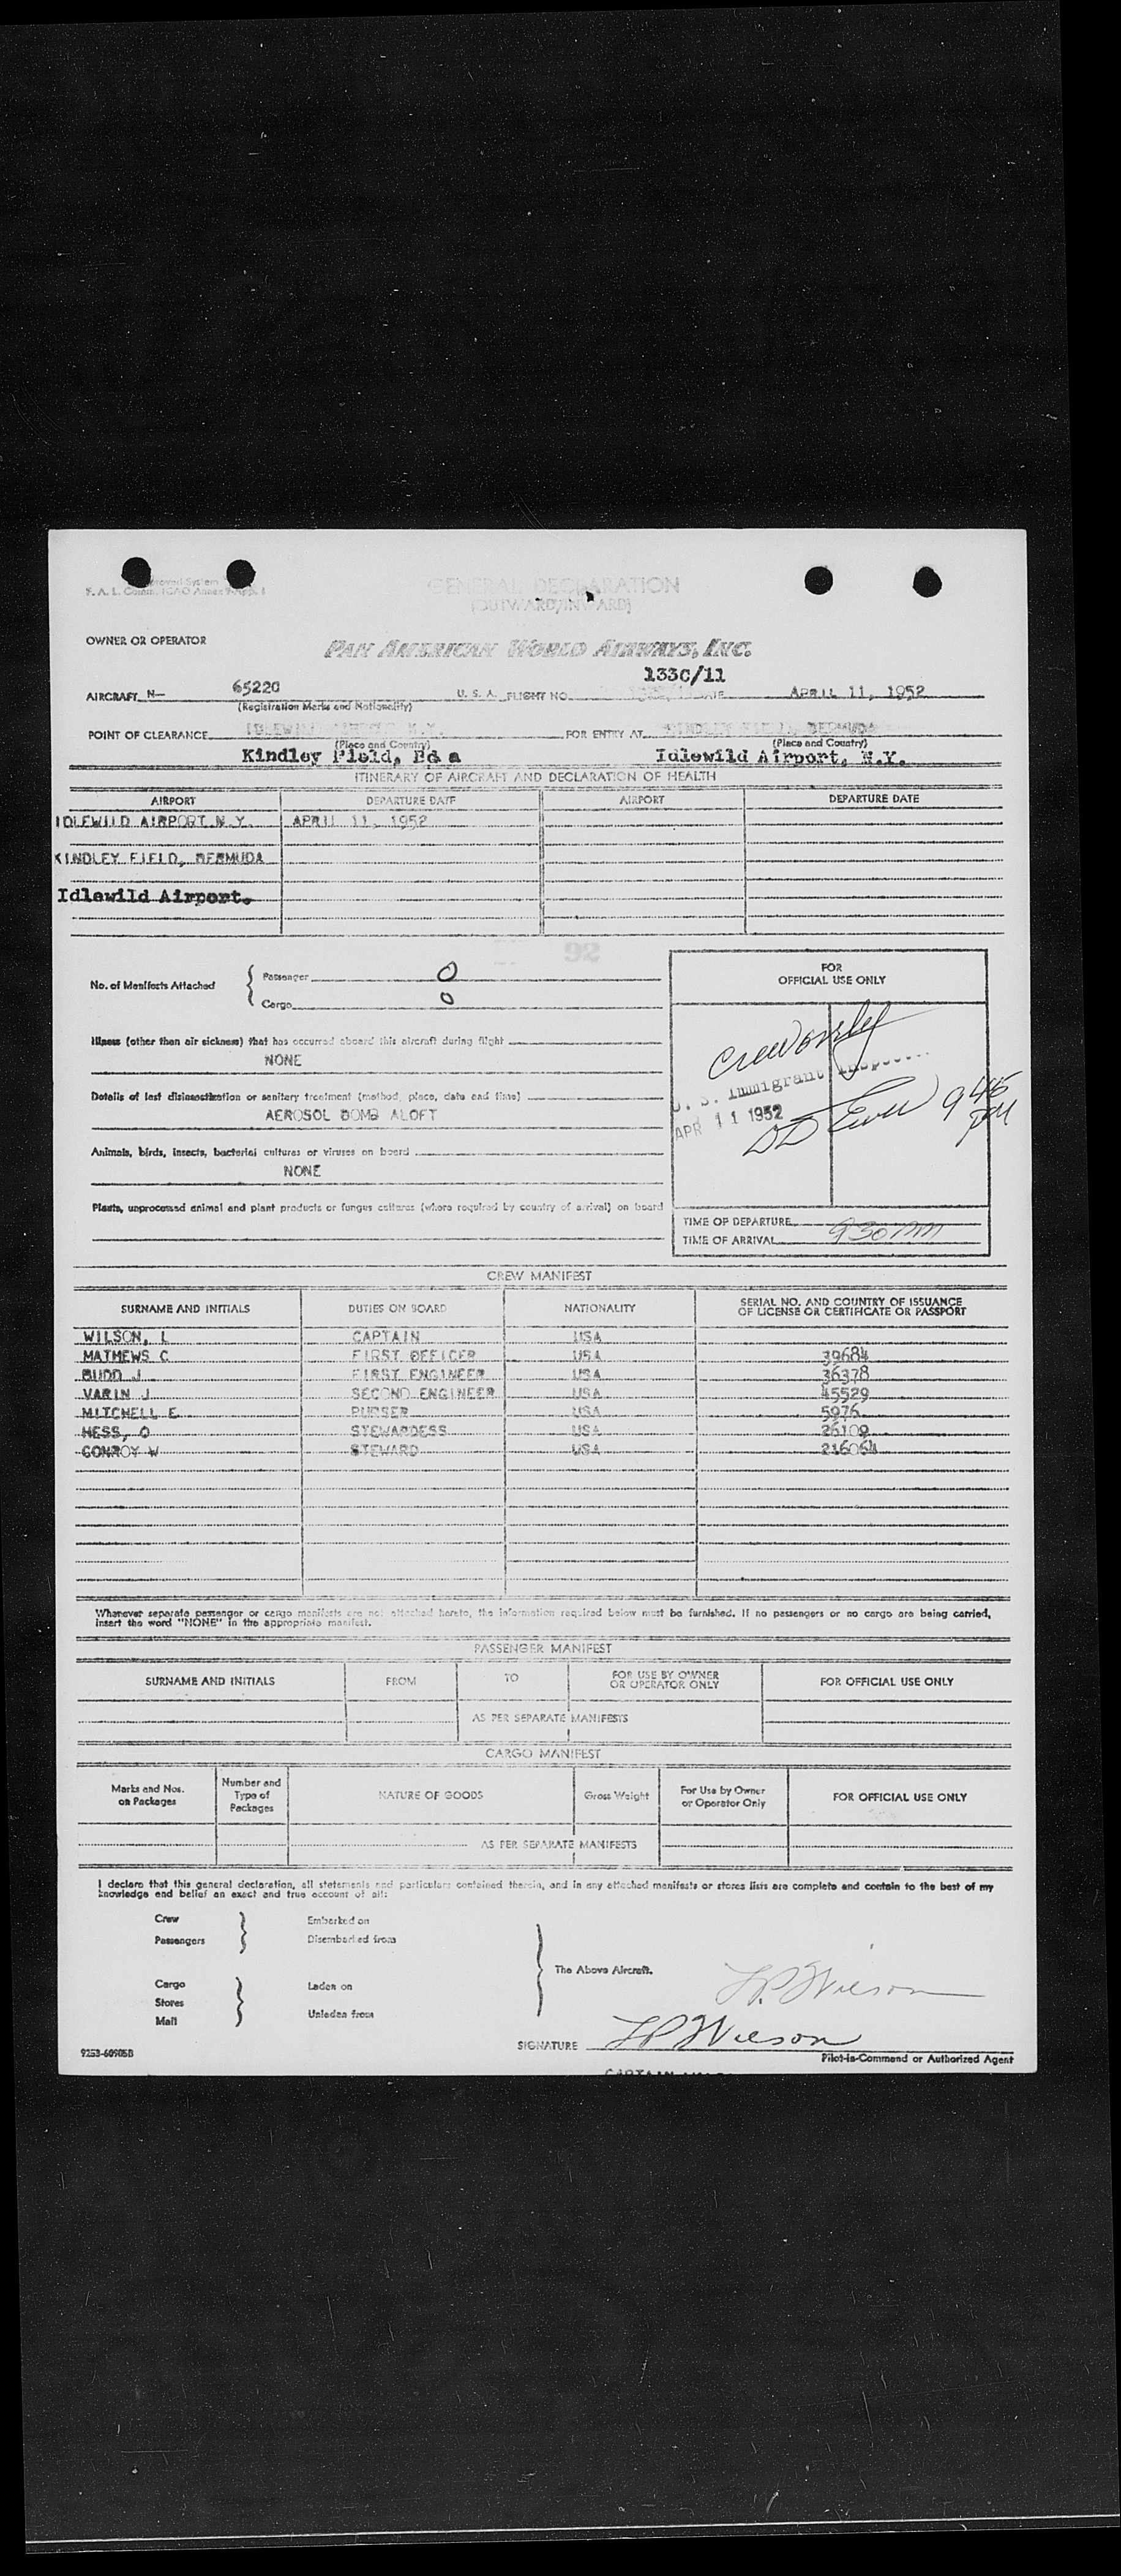 Approved System
F. A. L. Comm. ICAO Annex 9-App. 1
GENERAL DECLARATION
(OUTWARD/INWARD)
OWNER OR OPERATOR
PAN AMERICAN WORLD AIRWAYS, INC.
133C/11
AIRCRAFT N— 65220 U. S. A. FLIGHT NO. DATE APRIL 11, 1952
(Registration Marks and Nationality)
POINT OF CLEARANCE IDLEWILD AIRPORT N.Y. FOR ENTRY AT KINDLEY FIELD, BERMUDA
(Place and Country) (Place and Country)
Kindley Field, Bda Idlewild Airport, N.Y.
ITINERARY OF AIRCRAFT AND DECLARATION OF HEALTH
AIRPORT DEPARTURE DATE AIRPORT DEPARTURE DATE
IDLEWILD AIRPORT N.Y. APRIL 11, 1952
KINDLEY FIELD, BERMUDA
Idlewild Airport.
92
No. of Manifests Attached { Passenger 0
Cargo 0
FOR
OFFICIAL USE ONLY
Crew only
U. S. Immigrant Inspector
APR 11 1952
945
PM
Illness (other than air sickness) that has occurred aboard this aircraft during flight
NONE
Details of last disinsectization or sanitary treatment (method, place, date and time)
AEROSOL BOMB ALOFT
Animals, birds, insects, bacterial cultures or viruses on board
NONE
Plants, unprocessed animal and plant products or fungus cultures (where required by country of arrival) on board
TIME OF DEPARTURE
TIME OF ARRIVAL 930 PM
CREW MANIFEST
SURNAME AND INITIALS DUTIES ON BOARD NATIONALITY SERIAL NO. AND COUNTRY OF ISSUANCE
OF LICENSE OR CERTIFICATE OR PASSPORT
WILSON, L CAPTAIN USA
MATHEWS C FIRST OFFICER USA 39684
BUDD J FIRST ENGINEER USA 36378
VARIN J SECOND ENGINEER USA 45529
MITCHELL E PURSER USA 5976
HESS, O STEWARDESS USA 26109
CONROY W STEWARD USA 216064
Whenever separate passenger or cargo manifests are not attached hereto, the information required below must be furnished. If no passengers or no cargo are being carried,
insert the word "NONE" in the appropriate manifest.
PASSENGER MANIFEST
SURNAME AND INITIALS FROM TO FOR USE BY OWNER
OR OPERATOR ONLY FOR OFFICIAL USE ONLY
AS PER SEPARATE MANIFESTS
CARGO MANIFEST
Marks and Nos.
on Packages Number and
Type of
Packages NATURE OF GOODS Gross Weight For Use by Owner
or Operator Only FOR OFFICIAL USE ONLY
AS PER SEPARATE MANIFESTS
I declare that this general declaration, all statements and particulars contained therein, and in any attached manifests or stores lists are complete and contain to the best of my
knowledge and belief an exact and true account of all:
Crew } Embarked on
Passengers Disembarked from
The Above Aircraft.
Cargo } Laden on
Stores
Mail Unladen from
LP Wilson
SIGNATURE LP Wilson
9253-60905B
Pilot-in-Command or Authorized Agent